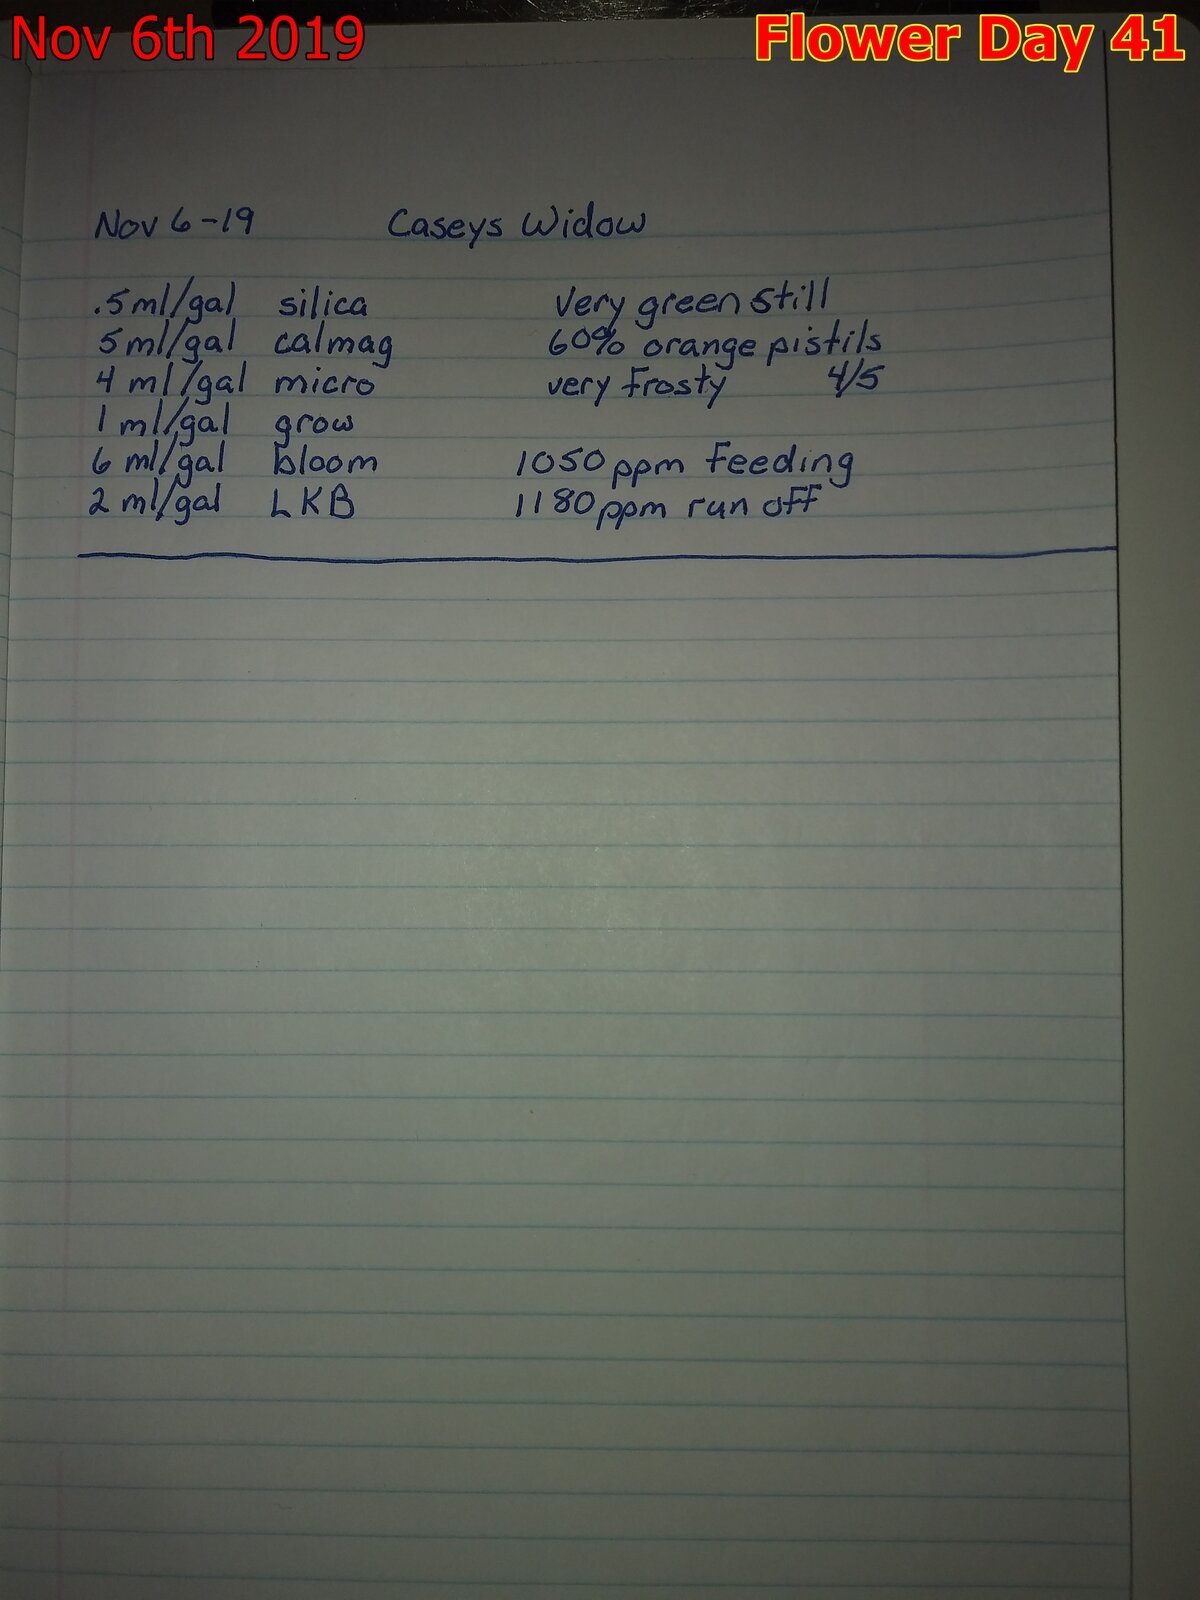 Nov 6th 2019 Flower Day 41
Nov 6-19 Caseys Widow
.5ml/gal silica Very green still
5ml/gal calmag 60% orange pistils
4 ml/gal micro very frosty 4/5
1 ml/gal grow
6 ml/gal bloom 1050 ppm feeding
2 ml/gal LKB 1180 ppm run off